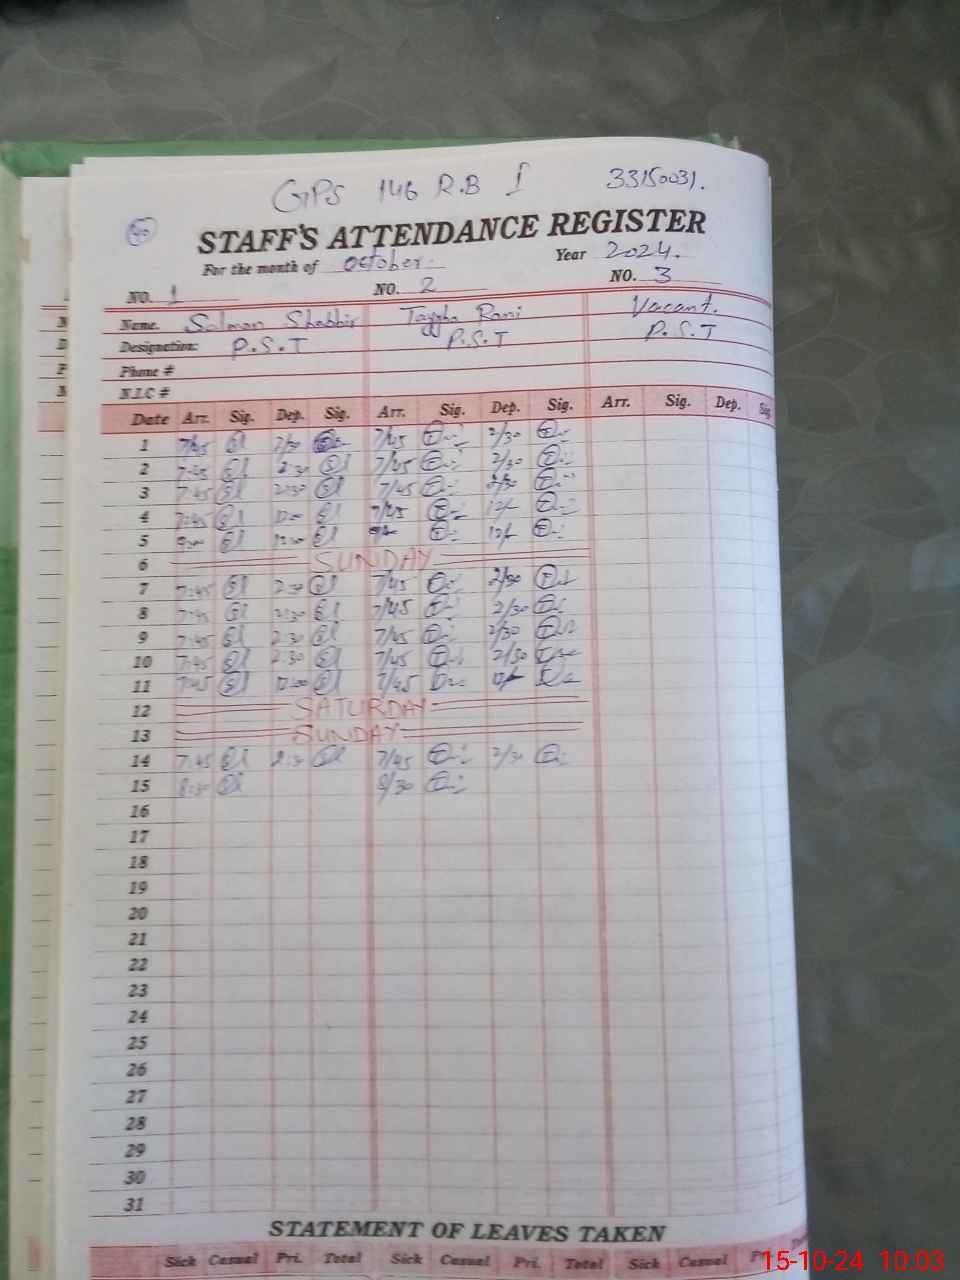 GPS 146 R.B I 33150031.
40
STAFF'S ATTENDANCE REGISTER
For the month of October. Year 2024.
NO. 1 NO. 2 NO. 3
Name. Salman Shabbir Tayyba Rani Vacant.
Designation: P.S.T P.S.T P.S.T
Phone #
N.I.C #
Date Arr. Sig. Dep. Sig. Arr. Sig. Dep. Sig. Arr. Sig. Dep. Sig.
1 7/45 2/30 7/45 2/30
2 7:45 2:30 7/45 2/30
3 7:45 2:30 7/45 2/30
4 7:45 12:00 7/45 12/-
5 9:00 12:00 12/-
6 SUNDAY
7 7:45 2:30 7/45 2/30
8 7:45 2:30 7/45 2/30
9 7:45 2:30 7/45 2/30
10 7:45 2:30 7/45 2/30
11 7:45 12:00 7/45 12/-
12 SATURDAY
13 SUNDAY
14 7:45 2:30 7/45 2/30
15 8:30 8/30
16
17
18
19
20
21
22
23
24
25
26
27
28
29
30
31
STATEMENT OF LEAVES TAKEN
Sick Casual Pri. Total Sick Casual Pri. Total Sick Casual
15-10-24 10:03